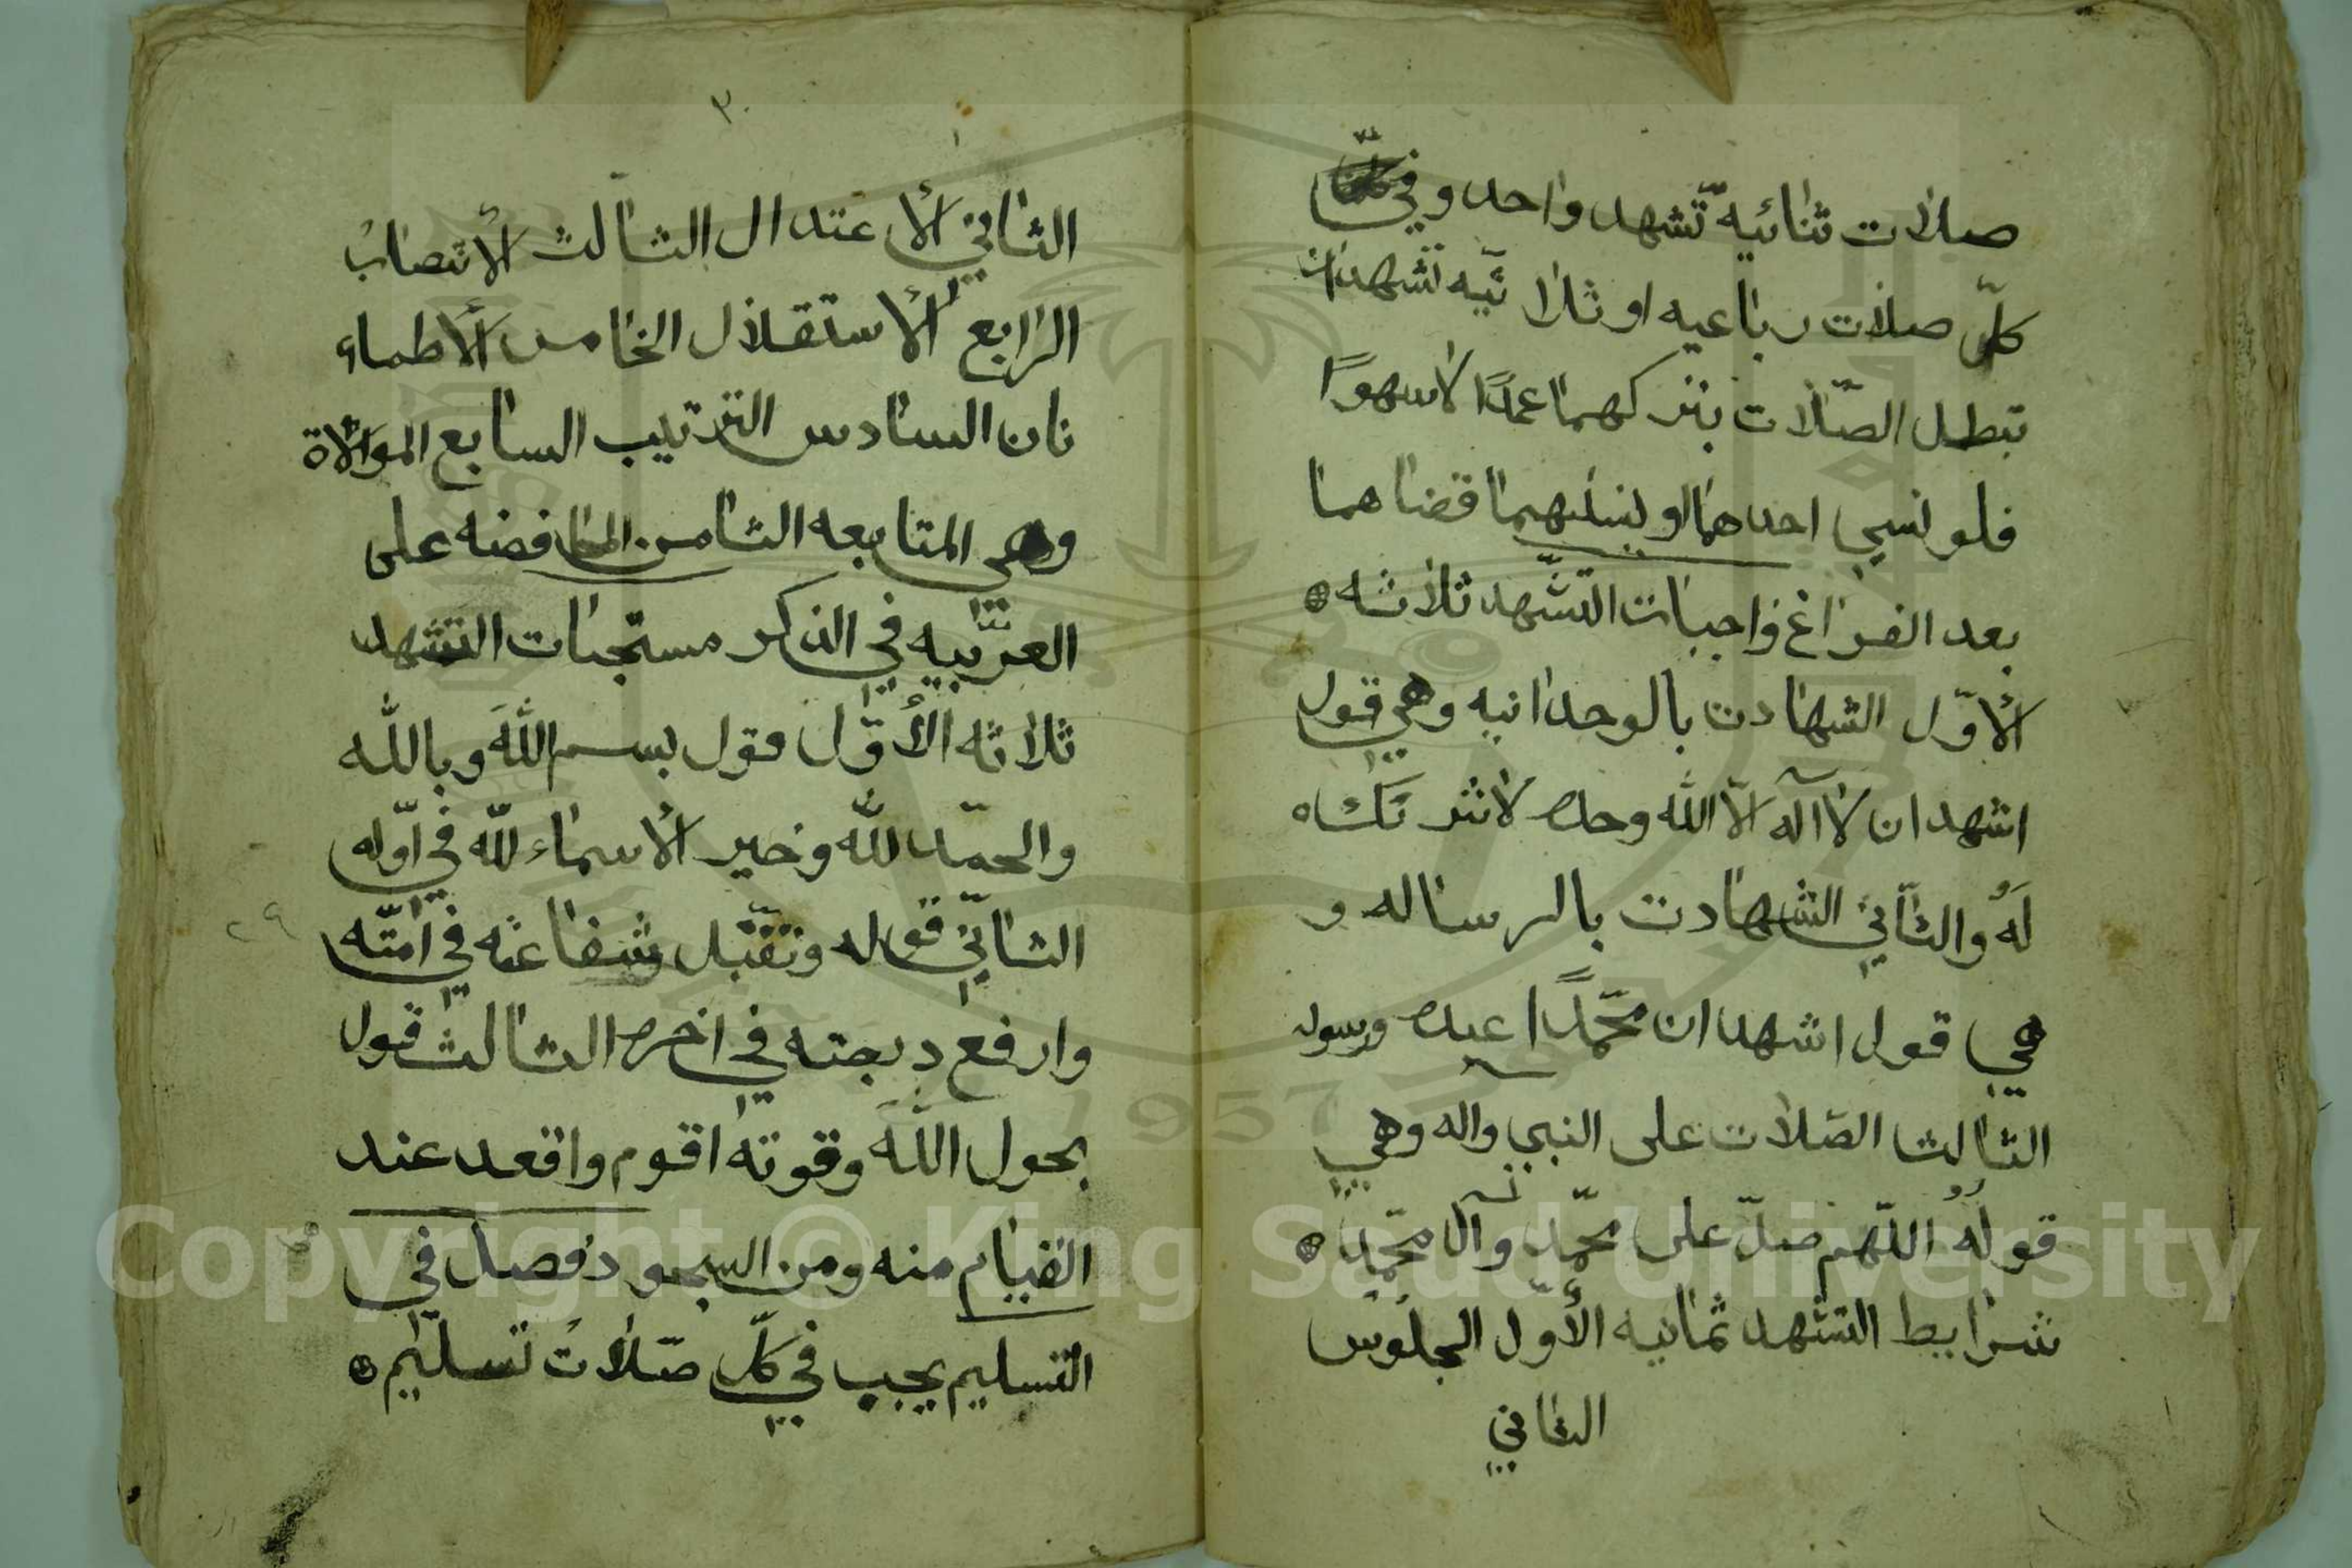 صلات ثنائيه تشهد واحد وفي
كلّ صلات رباعيه او ثلا ثيه تشهدان
تبطل الصّلات بتركهما عمدًا لا سهوًا
فلو نسي احدهما او نسيهما قضاهما
بعد الفراغ واجبات التشّهد ثلاثه
الأوّل الشهادت بالوحدانيه وهي قول
اشهد ان لا اله الّا الله وحده لا شريك له
لهُ والثاني الشهادت بالرساله و
هي قول اشهد ان محمّدًا عبده ورسوله
الثالث الصّلات على النبي واله وهي
قولهُ اللّهم صلّ على محمّد وآل محمّد
شرايط التشهد ثمانيه الأوّل الجلوس
الثاني
٣٠
الثاني الأعتدال الثالث الأنتصاب
الرابع الأستقلال الخامس الأطماء
نان السادس الترتيب السابع الموالاة
وهي المتابعه الثامن المحافضه على
العربّيه في الذكر مستحبات التشهد
ثلاثه الأوّل قول بسم الله وبالله
والحمد للّه وخير الأسماء للّه في اوّله
الثاني قوله وتقّبل شفاعته في امّته
وارفع درجته في اخره الثالث قول
بحول اللّه وقوته اقوم واقعد عند
القيام منه ومن السجود فصل في
التسليم يجب في كلّ صّلات تسليم
٢٩
Copyright © King Saud University
1957